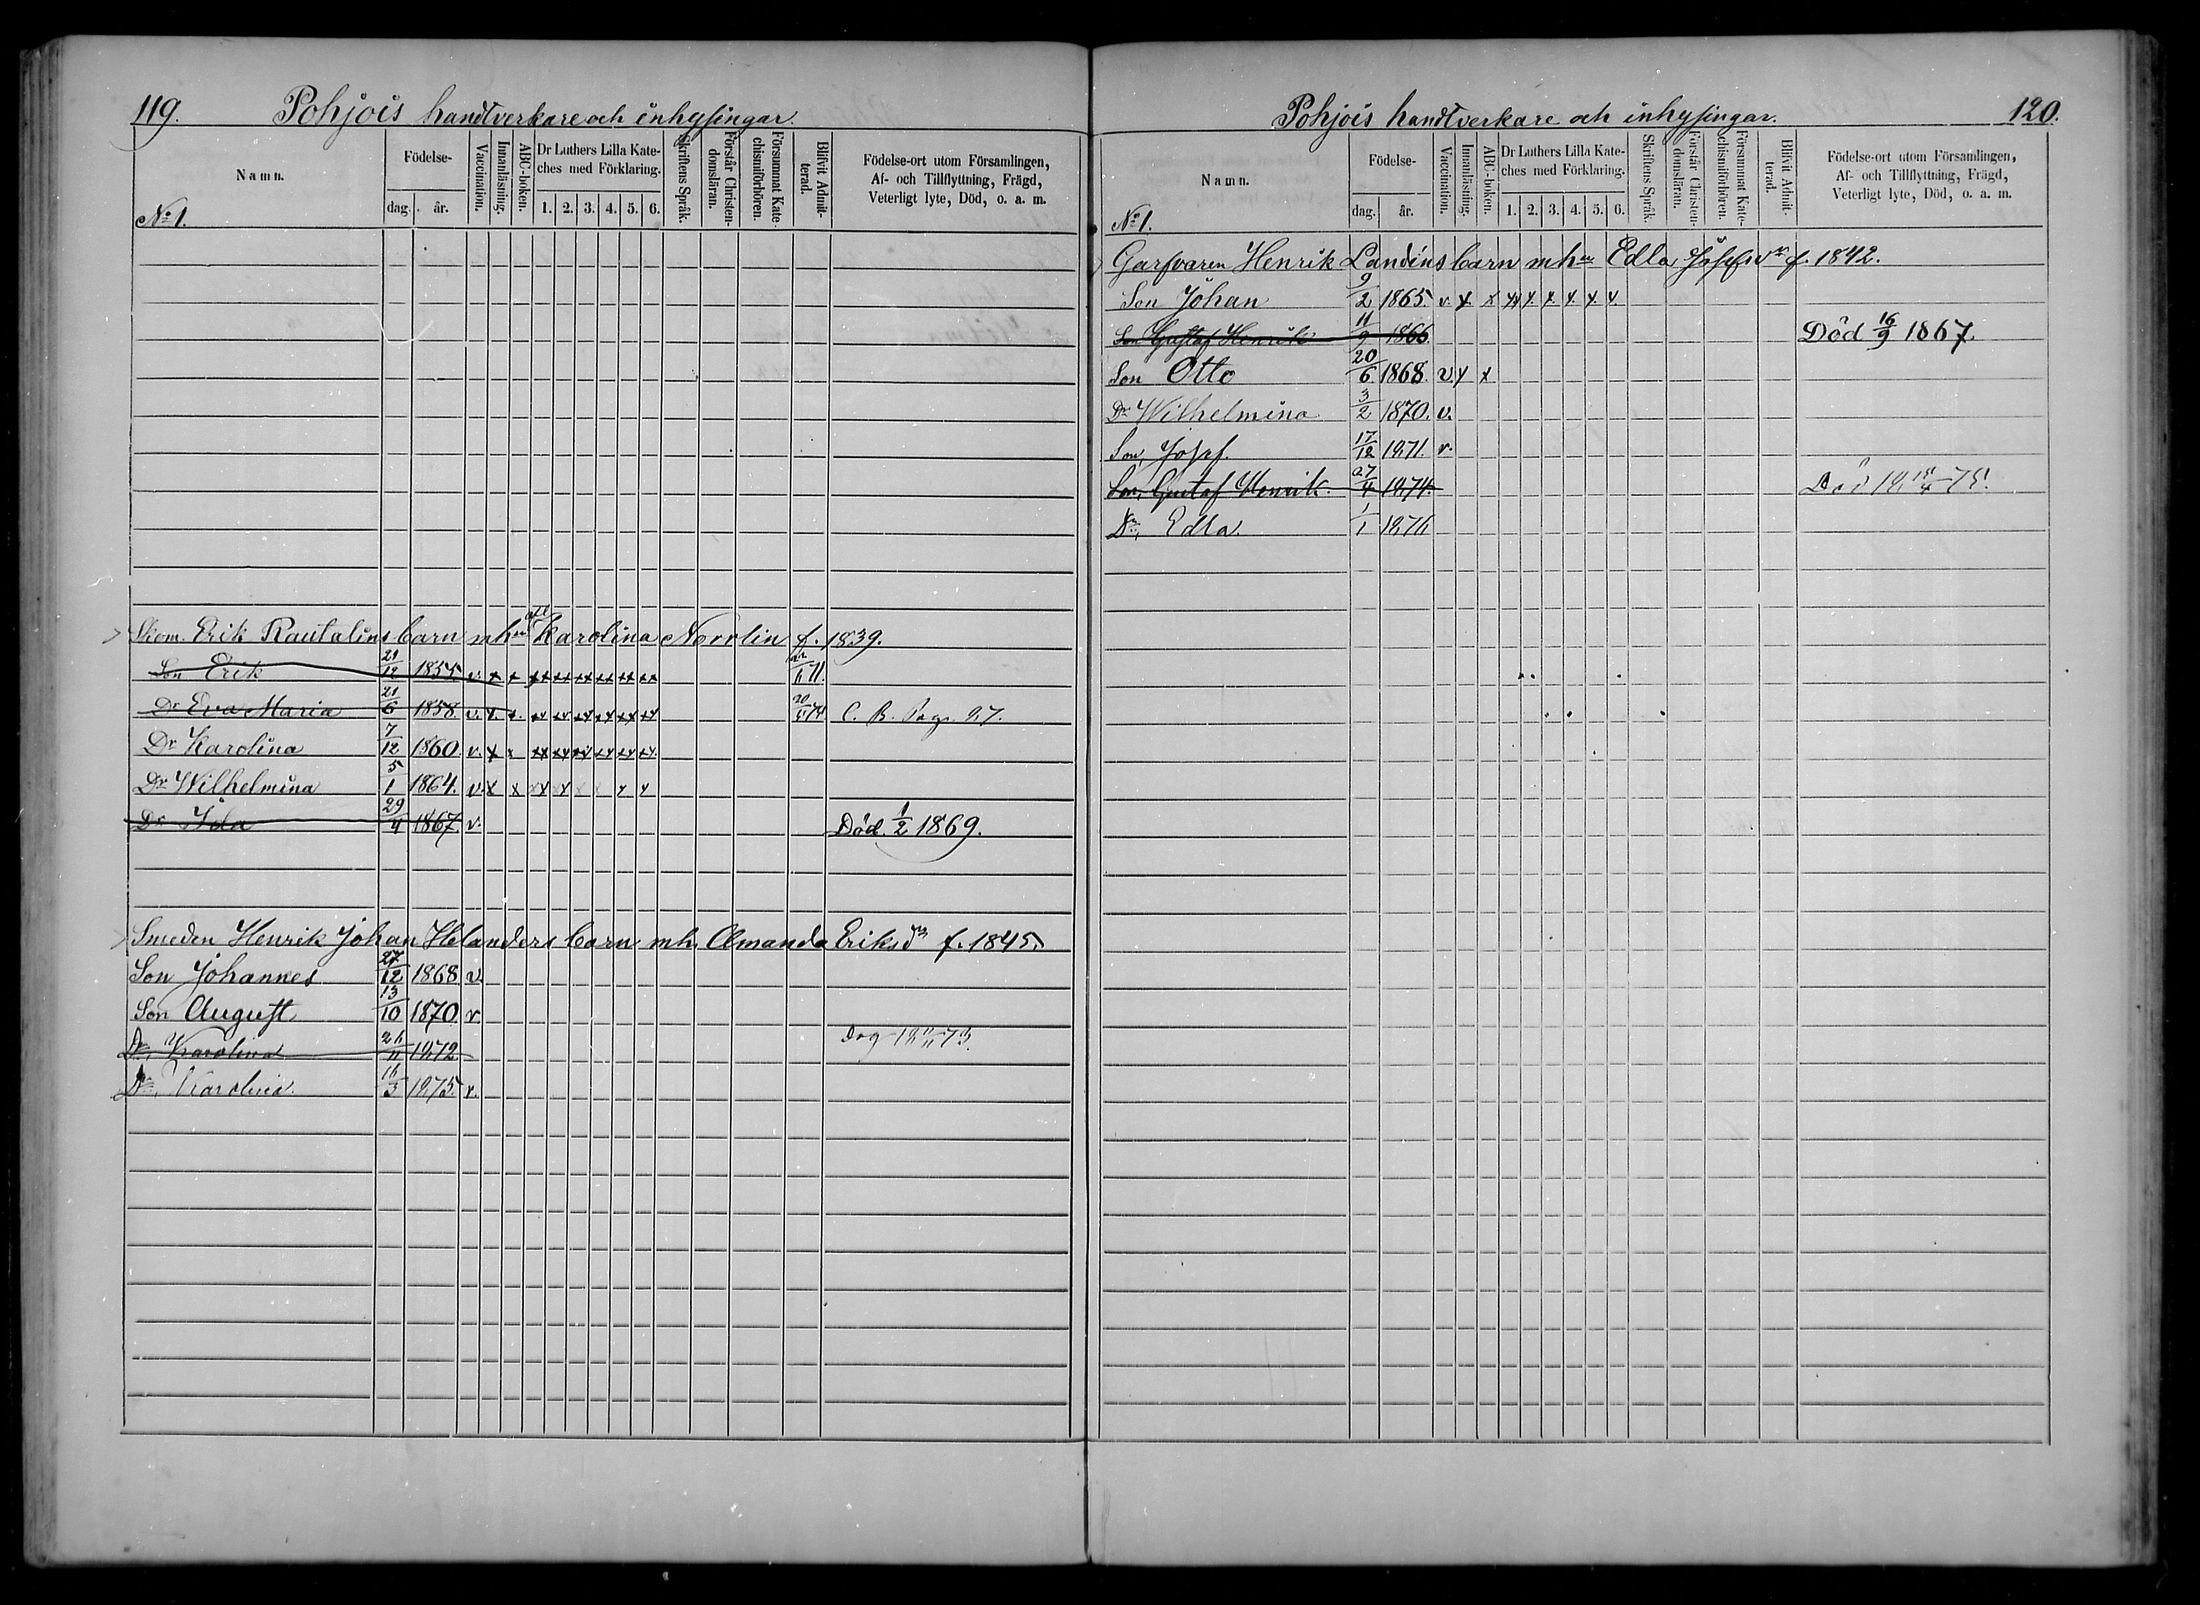 119. Pohjois handtverkare och inhysingar.
Namn. Födelse- Vaccination. Innanläsning. ABC-boken. Dr Luthers Lilla Kate-ches med Förklaring. Skriftens Språk. Förstår Christen-domsläran. Försummat Kate-chismiförhören. Blifvit Admit-terad. Födelse-ort utom Församlingen, Af- och Tillflyttning, Frägd, Veterligt lyte, Död, o. a. m.
dag. år. 1. 2. 3. 4. 5. 6.
No 1.
Skom. Erik Rautalins barn mhu afl Karolina Norrlin f. 1839.
Son Erik 21/12 1855 v. x x xx xx xx xx xx xx 71.
Dr Eva Maria 21/6 1858. v. x. x. xx xx xx xx xx xx 74 C. B. Pag. 27.
Dr Karolina 7/12 1860. v. x xx xx xx xx xx xx
Dr Wilhelmina 5/1 1864. v. x x xx xx x x x x
Dr Ida 29/4 1867. v. Död. 1/2 1869.
Smeden Henrik Johan Helanders barn mh. Amanda Eriksdr f. 1845.
Son Johannes 27/12 1868 v.
Son August 13/10 1870 v.
Dr, Karolina 26/11 1872 Dog 73.
Dr, Karolina. 16/3 1875. v.
Pohjois handtverkare och inhysingar. 120.
Namn. Födelse- Vaccination. Innanläsning. ABC-boken. Dr Luthers Lilla Kate-ches med Förklaring. Skriftens Språk. Förstår Christen-domsläran. Försummat Kate-chismiförhören. Blifvit Admit-terad. Födelse-ort utom Församlingen, Af- och Tillflyttning, Frägd, Veterligt lyte, Död, o. a. m.
dag. år. 1. 2. 3. 4. 5. 6.
No 1.
Garfvaren Henrik Landéns barn mhu Edla f. 1842.
Son Johan 9/2 1865. v. x x xx x x x x x
Son Gustaf Henrik 11/9 1866 Död 16/9 1867.
Son Otto 20/6 1868. v. x x
Dr Wilhelmina 3/2 1870. v.
Son, Josef. 17/12 1871. v.
Son, Gustaf Henrik. 27/4 1874. Död 75.
Dr, Edla. 1/1 1876